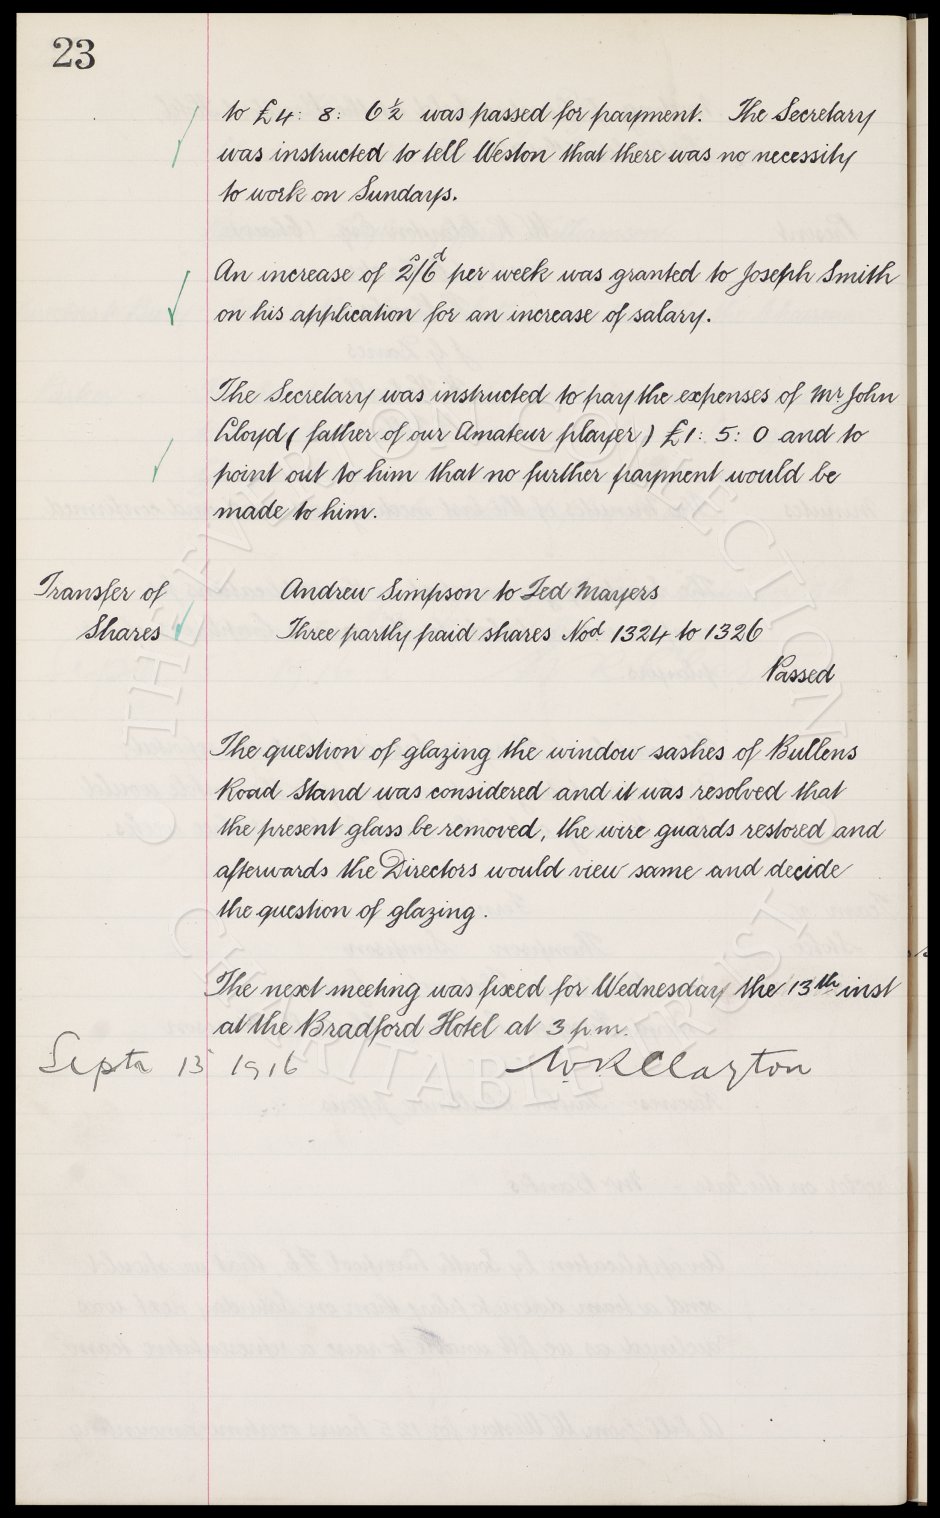 23
to £4: 8: 6½ was passed for payment. The Secretary
was instructed to tell Weston that there was no necessity
to work on Sundays.
An increase of 2s/6d per week was granted to Joseph Smith
on his application for an increase of salary.
The Secretary was instructed to pay the expenses of Mr John
Lloyd (father of our Amateur player) £1: 5: 0 and to
point out to him that no further payment would be
made to him.
Transfer of Andrew Simpson to Ted Mayers
Shares Three partly paid shares Nod 1324 to 1326
Passed
The question of glazing the window sashes of Bullens
Road Stand was considered and it was resolved that
the present glass be removed, the wire guards restored and
afterwards the Directors would view same and decide
the question of glazing.
The next meeting was fixed for Wednesday the 13th inst
at the Bradford Hotel at 3 p.m.
Septr 13 1916 W R Clayton
THE EVERTON COLLECTION
CHARITABLE TRUST